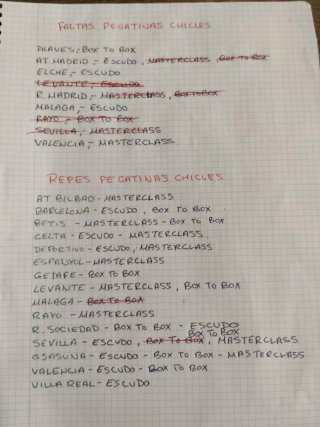 FALTAS PEGATINAS CHICLES
ALAVES,- BOX TO BOX
AT. MADRID,- ESCUDO, MASTERCLASS, BOX TO BOX
ELCHE,- ESCUDO
LEVANTE,- ESCUDO
R. MADRID,- MASTERCLASS, BOX TO BOX
MALAGA,- ESCUDO
RAYO,- BOX TO BOX
SEVILLA,- MASTERCLASS
VALENCIA,- MASTERCLASS
REPES PEGATINAS CHICLES
AT BILBAO - MASTERCLASS
BARCELONA - ESCUDO, BOX TO BOX
BETIS - MASTERCLASS - BOX TO BOX
CELTA - ESCUDO - MASTERCLASS
DEPORTIVO - ESCUDO, MASTERCLASS
ESPANYOL - MASTERCLASS
GETAFE - BOX TO BOX
LEVANTE - MASTERCLASS, BOX TO BOX
MALAGA - BOX TO BOX
RAYO - MASTERCLASS
R. SOCIEDAD - BOX TO BOX - ESCUDO
BOX TO BOX
SEVILLA - ESCUDO, BOX TO BOX, MASTERCLASS
OSASUNA - ESCUDO - BOX TO BOX - MASTERCLASS
VALENCIA - ESCUDO - BOX TO BOX
VILLA REAL - ESCUDO